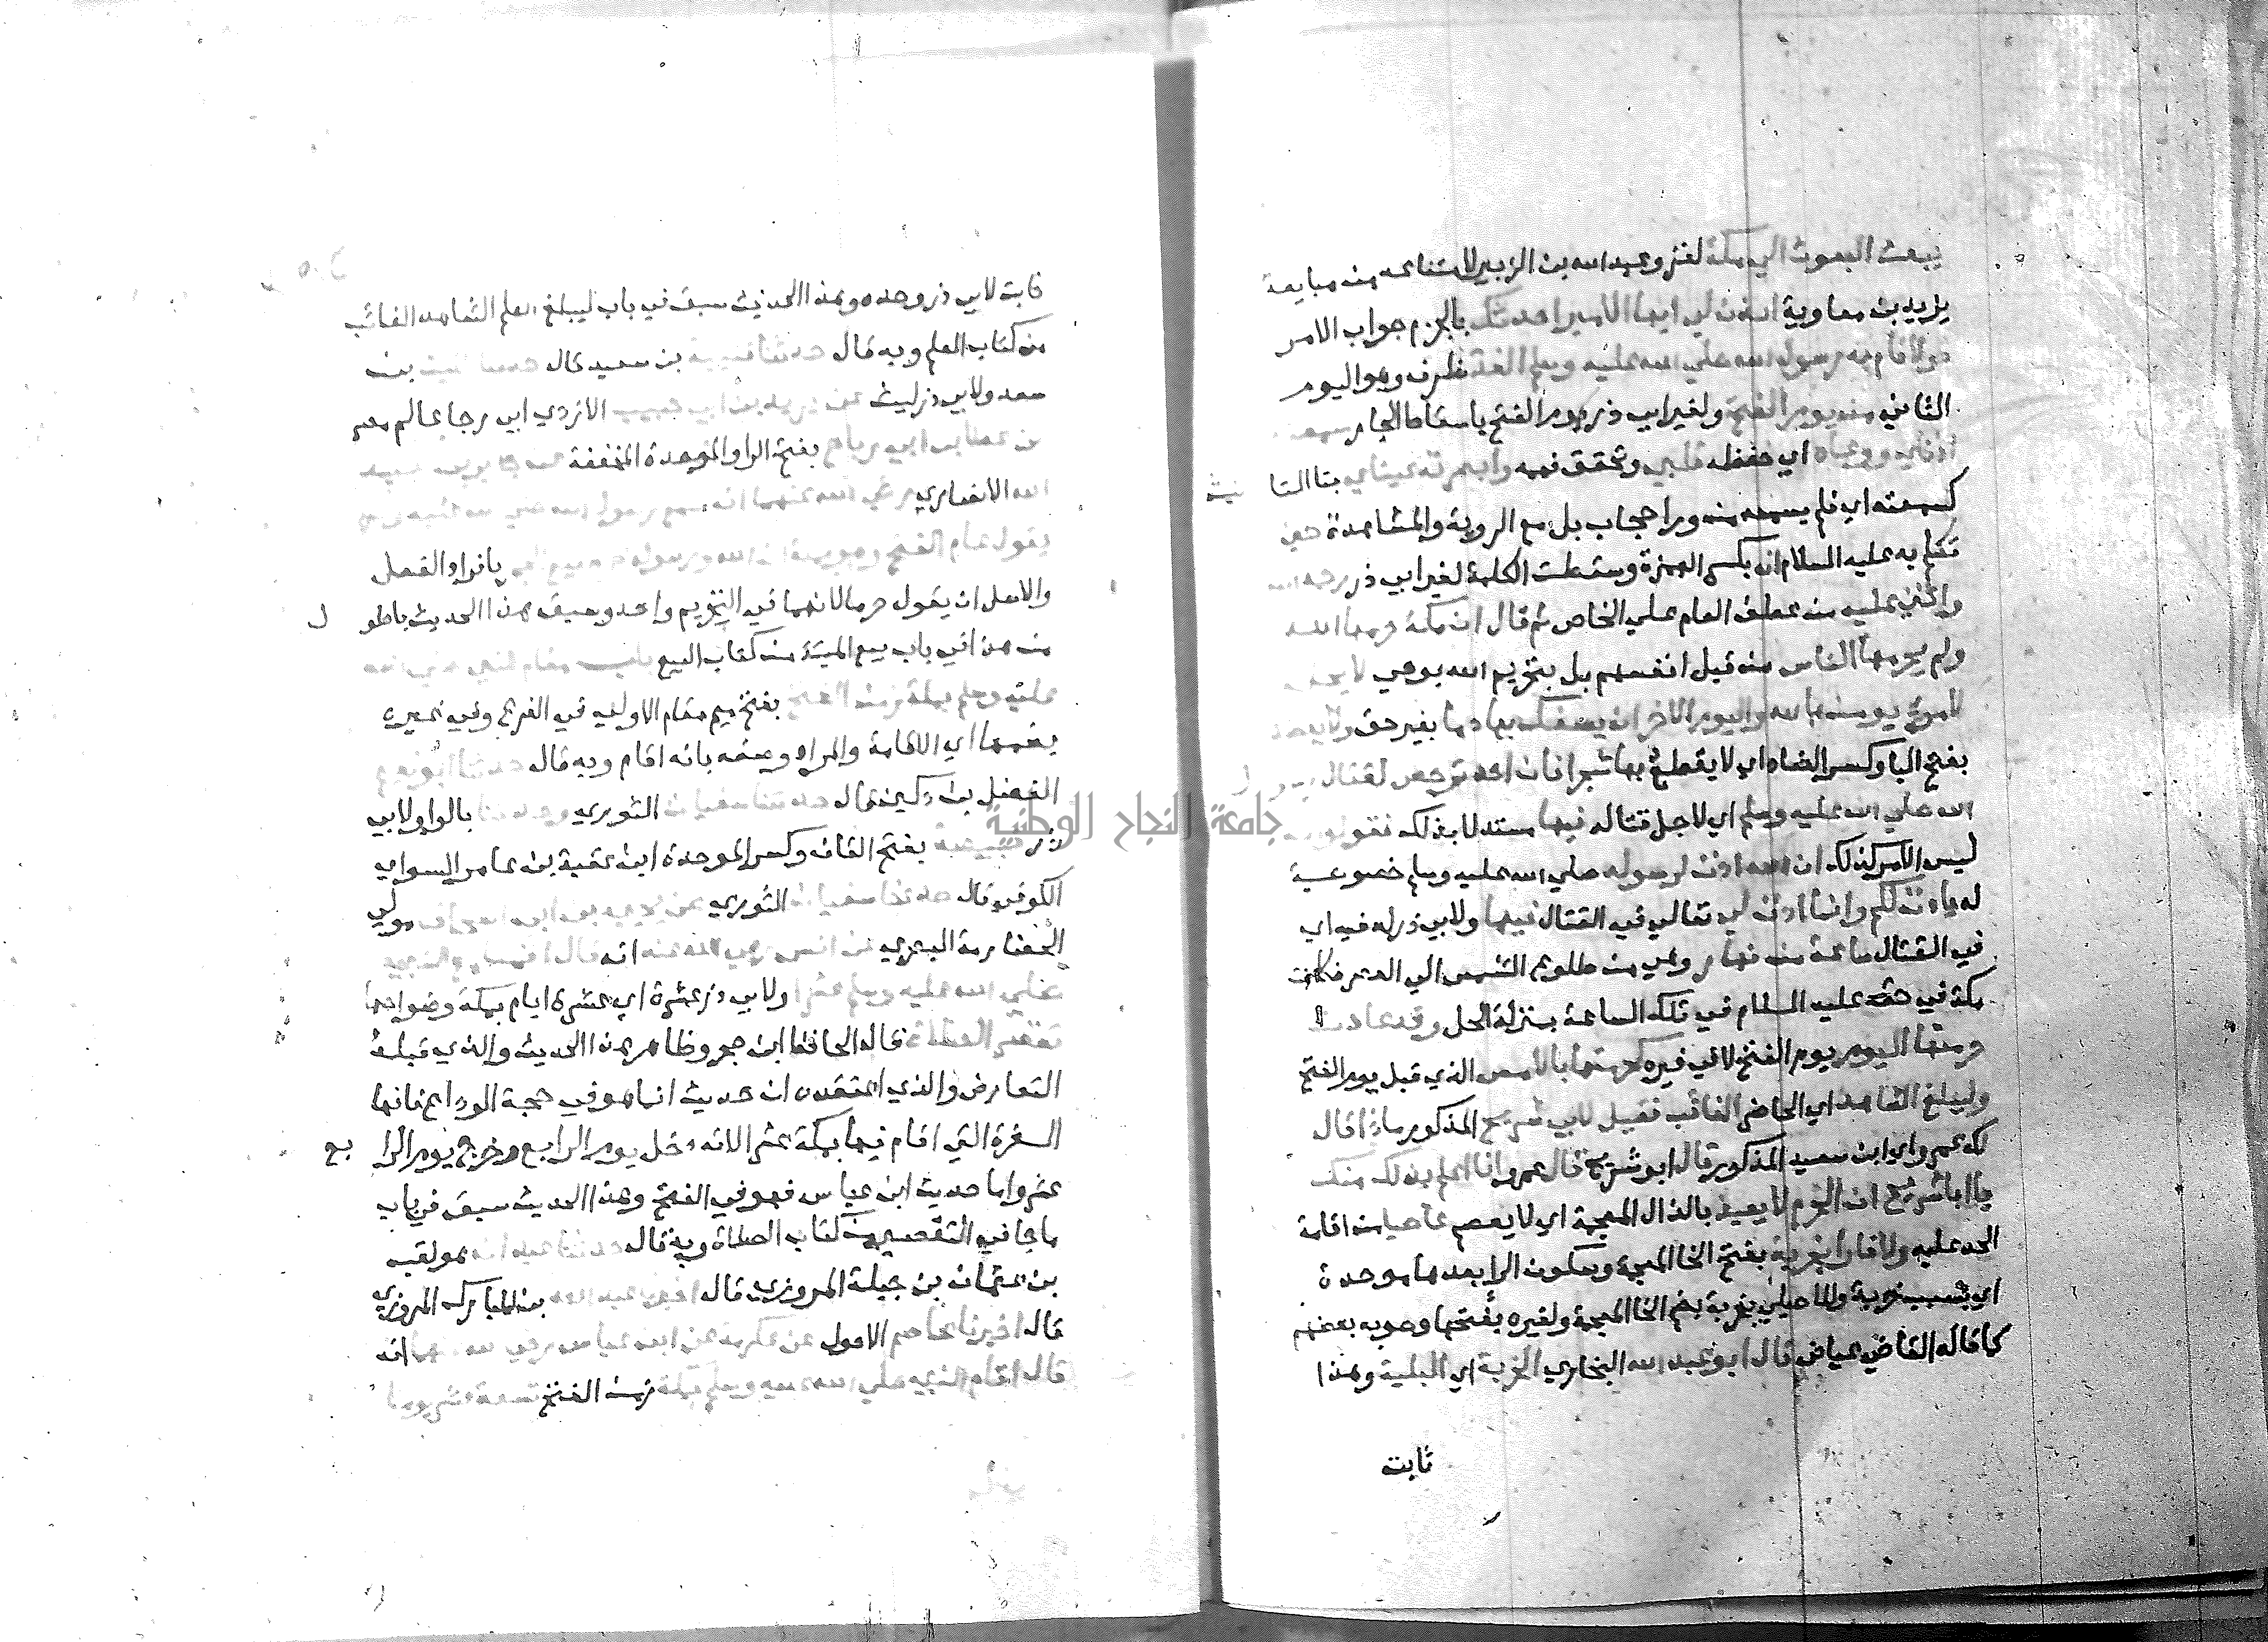 يبعث البعوث الي مكة لغزو عبد الله بن الزبير لامتناعه من مبايعة
يزيد بن معاوية ائذن لي ايها الامير احدثك بالجزم جواب الامر
قولا قام به رسول الله صلي الله عليه وسلم الغد ظرف وهو اليوم
الثاني من يوم الفتح ولغير ابي ذر يوم الفتح باسقاط الجار سمعته
اذناي ووعاه اي حفظه قلبي وتحقق فهمه وابصرته عيناي بتا التا نيث
كسمعته اي فلم يسمعه من ورا حجاب بل مع الروية والمشاهدة حين
تكلم به عليه السلام انه بكسر الهمزة وسقطت الكلمة لغير ابي ذر حمد الله
واثني عليه من عطف العام علي الخاص ثم قال ان مكة حرمها الله
ولم يحرمها الناس من قبل انفسهم بل بتحريم الله بوحي لا يحل
لامري يومن بالله واليوم الاخر ان يسفك بها دما بغير حق ولا يعضد
بفتح اليا وكسر الضاد اي لا يقطع بها شجرا فان احد ترخص لقتال رسول
الله صلي الله عليه وسلم اي لاجل قتاله فيها مستدلا بذلك فقولوا له
ليس الامر كذلك ان الله اذن لرسوله صلي الله عليه وسلم خصوصية
له ولم ياذن لكم وانما اذن لي تعالي في القتال فيها ولابي ذر له فيه اي
في القتال ساعة من نهار وهي من طلوع الشمس الي العصر فكانت
مكة في حقه عليه السلام في تلك الساعة بمنزلة الحل وقد عادت
حرمتها اليوم يوم الفتح لا في غيره كحرمتها بالامس الذي قبل يوم الفتح
وليبلغ الشاهد اي الحاضر الغائب فقيل لابي شريح المذكور ماذا قال
لك عمرو اي ابن سعيد المذكور قال ابو شريح قال عمرو انا اعلم بذلك منك
يا ابا شريح ان الحرم لا يعيذ بالذال المعجمة اي لا يعصم عاصيا من اقامة
الحد عليه ولا فارا بخربة بفتح الخا المعجمة وسكون الرا بعدها موحدة
اي بسبب خربة وللاصيلي بخربة بضم الخا المعجمة ولغيره بفتحها وصوبه بعضهم
كما قاله القاضي عياض قال ابو عبد الله البخاري الخربة اي البلية وهذا
ثابت
ثابت لابي ذر وحده وهذا الحديث سبق في باب ليبلغ العلم الشاهد الغائب
من كتاب العلم وبه قال حدثنا قتيبة بن سعيد قال حدثنا الليث بن
سعد ولابي ذر ليث عن يزيد بن ابي حبيب الازدي ابي رجا عالم مصر
عن عطا بن ابي رباح بفتح الرا والموحدة المخففة عن جابر بن عبد
الله الانصاري رضي الله عنهما انه سمع رسول الله صلي الله عليه وسلم
يقول عام الفتح وهو بمكة ان الله ورسوله حرم بيع الخمر بافراد الفعل
والاصل ان يقول حرما لانهما في التحريم واحد وسبق هذا الحديث باطو ل
من هذا في باب بيع الميتة من كتاب البيع باب مقام النبي صلي الله
عليه وسلم بمكة زمن الفتح بفتح ميم مقام الاولي في الفرع وفي غيره
بضمها اي الاقامة والمراد وصفه بانه اقام وبه قال حدثنا ابو نعيم
الفضل بن دكين قال حدثنا سفيان الثوري بالواو ولابي
ذر قبيصة بفتح القاف وكسر الموحدة ابن عقبة بن عامر السواي
الكوفي قال حدثنا سفيان الثوري عن يحيي بن ابي اسحاق مولي
الحضارمة البصري عن انس رضي الله عنه انه قال اقمنا مع النبي
صلي الله عليه وسلم عشرا ولابي ذر عشرة اي عشرة ايام بمكة وضواحيها
نقصر الصلاة قال الحافظ ابن حجر وظاهر هذا الحديث والذي قبله
التعارض والذي اعتقده ان حديث انس هو في حجة الوداع فانها
السفرة التي اقام فيها بمكة عشرا لانه دخل يوم الرابع وخرج يوم الرا بع
عشر واما حديث ابن عباس فهو في الفتح وهذا الحديث سبق في باب
ما جا في التقصير من كتاب الصلاة وبه قال حدثنا عبدان هو لقب
بن عثمان بن جبلة المروزي قال اخبرنا عبد الله بن المبارك المروزي
قال اخبرنا عاصم الاحول عن عكرمة عن ابن عباس رضي الله عنهما انه
قال اقام النبي صلي الله عليه وسلم بمكة زمن الفتح تسعة عشر يوما
جامعة النجاح الوطنية